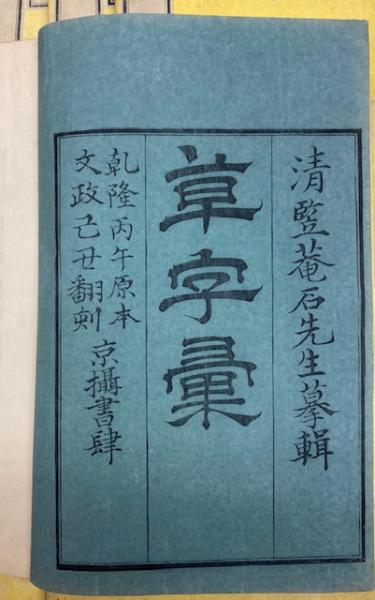 清豎菴石先生摹輯
草字彙
乾隆丙午原本
文政己丑翻刻
京攝書肆